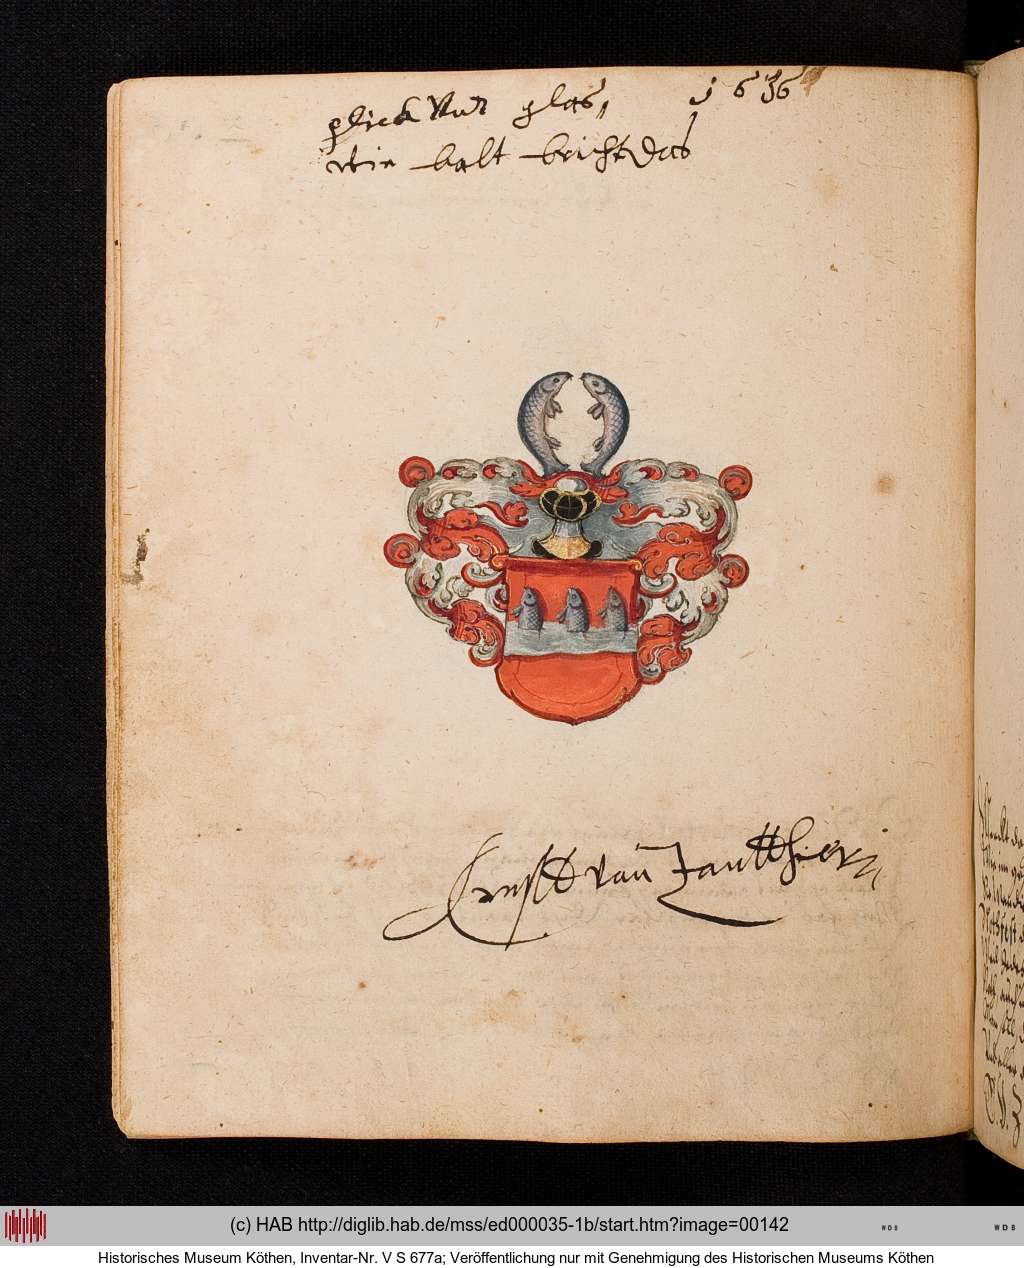 glick Vnd glas, 1636
wie balt bricht das
Ernst van Zantthier
(c) HAB http://diglib.hab.de/mss/ed000035-1b/start.htm?image=00142
WDB
WDB
Historisches Museum Köthen, Inventar-Nr. V S 677a; Veröffentlichung nur mit Genehmigung des Historischen Museums Köthen